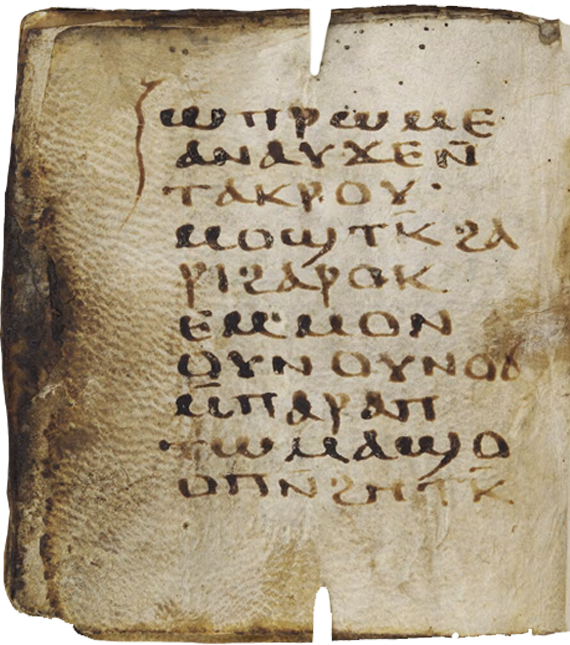 ⲱⲡⲣⲱⲙⲉ
ⲁⲛⲁⲩϫⲉⲛ̄
ⲧⲁⲕⲣⲟⲩ·
ⲙⲟϣⲧⲕ̄ϩⲁ
ⲣⲓϩⲁⲣⲟⲕ
ⲉⲙⲙⲟⲛ
ⲟⲩⲛⲟⲩⲛⲟϭ
ⲙ̄ⲡⲁⲣⲁⲡ
ⲧⲱⲙⲁϣⲟ
ⲟⲡⲛ̄ϩⲏⲧⲕ̄